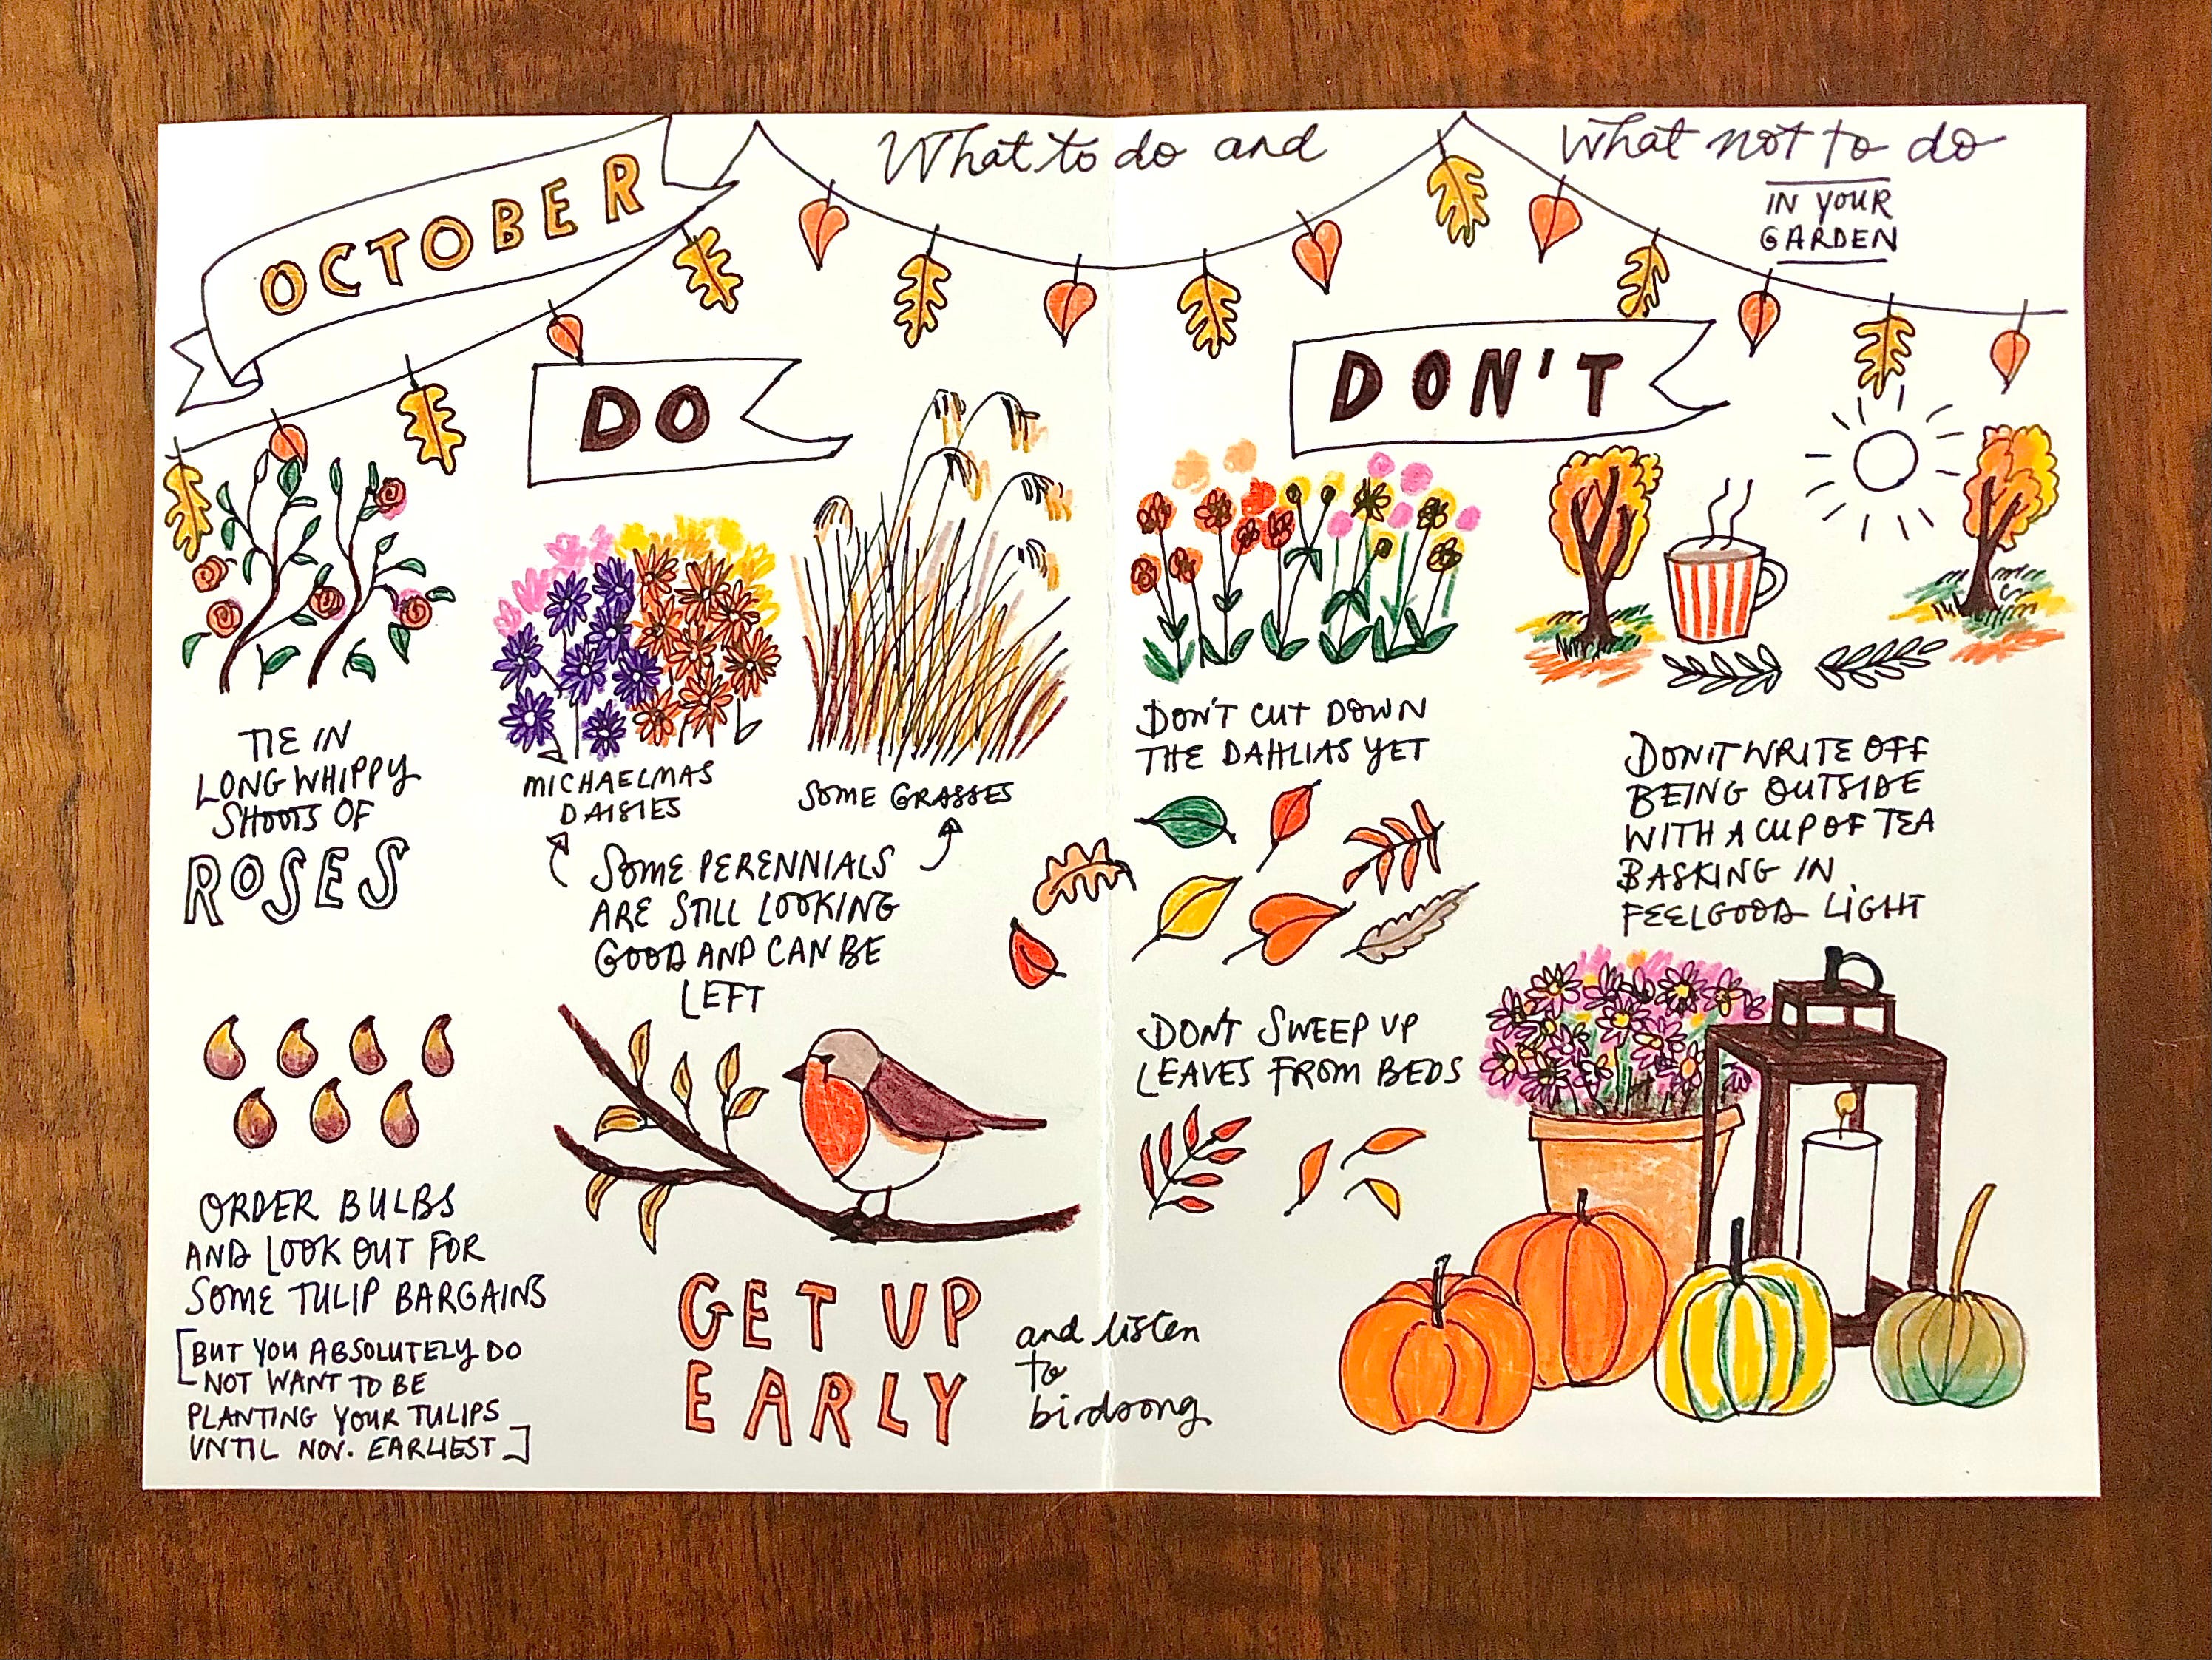 OCTOBER
What to do and What not to do
IN YOUR
GARDEN
DO
TIE IN
LONG WHIPPY
SHOOTS OF
ROSES
MICHAELMAS
DAISIES
SOME GRASSES
SOME PERENNIALS
ARE STILL LOOKING
GOOD AND CAN BE
LEFT
ORDER BULBS
AND LOOK OUT FOR
SOME TULIP BARGAINS
[BUT YOU ABSOLUTELY DO
NOT WANT TO BE
PLANTING YOUR TULIPS
UNTIL NOV. EARLIEST]
GET UP
EARLY
and listen
to
birdsong
DON'T
DON'T CUT DOWN
THE DAHLIAS YET
DON'T WRITE OFF
BEING OUTSIDE
WITH A CUP OF TEA
BASKING IN
FEELGOOD LIGHT
DON'T SWEEP UP
LEAVES FROM BEDS